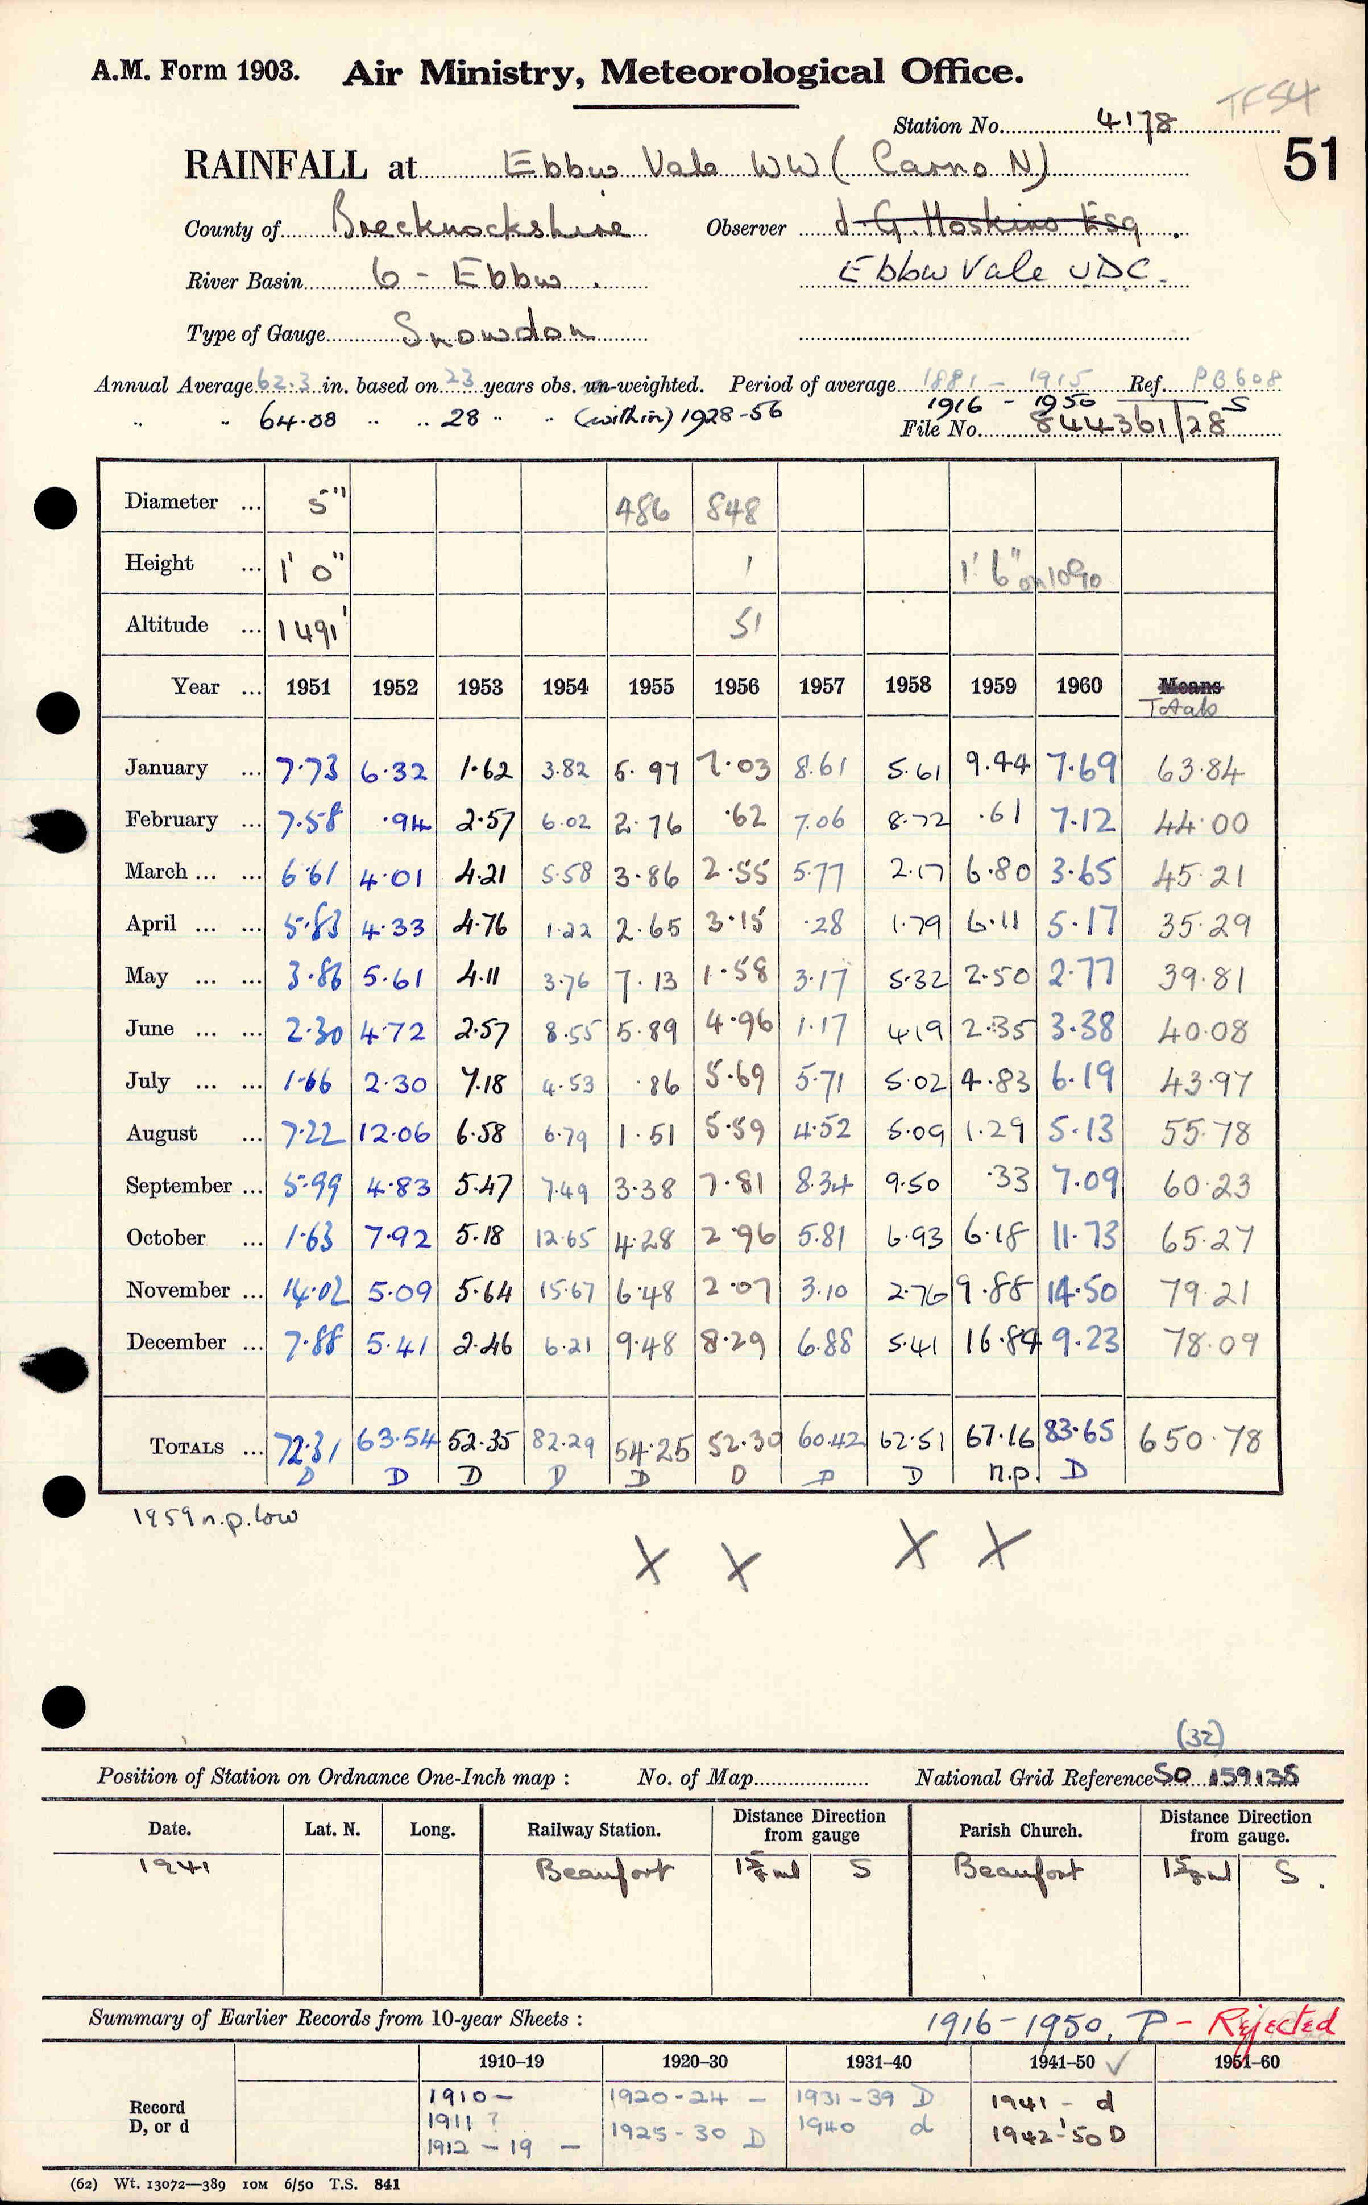 A.M. Form 1903. Air Ministry, Meteorological Office.
TF54
Station No. 4178
51
RAINFALL at Ebbw Vale WW (Carno N)
County of Brecknockshire Observer d G. Hoskins Esq.
River Basin 6 - Ebbw. Ebbw Vale UDC.
Type of Gauge Snowdon
Annual Average 62.3 in. based on 23 years obs. un-weighted. Period of average 1881 - 1915 Ref. PB608
" " 64.08 " " 28 " " (within) 1928-56 1916 - 1950 S
File No. 844361/28
Diameter ... 5" 486 848
Height ... 1' 0" 1 1' 6" on 1090
Altitude ... 1491' 51
Year ... 1951 1952 1953 1954 1955 1956 1957 1958 1959 1960 Means
Totals
January ... 7.73 6.32 1.62 3.82 5.97 7.03 8.61 5.61 9.44 7.69 63.84
February ... 7.58 .94 2.57 6.02 2.76 .62 7.06 8.72 .61 7.12 44.00
March ... ... 6.61 4.01 4.21 5.58 3.86 2.55 5.77 2.17 6.80 3.65 45.21
April ... ... 5.83 4.33 4.76 1.22 2.65 3.15 .28 1.79 6.11 5.17 35.29
May ... ... 3.86 5.61 4.11 3.76 7.13 1.58 3.17 5.32 2.50 2.77 39.81
June ... ... 2.30 4.72 2.57 8.55 5.89 4.96 1.17 4.19 2.35 3.38 40.08
July ... ... 1.66 2.30 7.18 4.53 .86 5.69 5.71 5.02 4.83 6.19 43.97
August ... 7.22 12.06 6.58 6.79 1.51 5.59 4.52 5.09 1.29 5.13 55.78
September ... 5.99 4.83 5.47 7.49 3.38 7.81 8.34 9.50 .33 7.09 60.23
October ... 1.63 7.92 5.18 12.65 4.28 2.96 5.81 6.93 6.18 11.73 65.27
November ... 14.02 5.09 5.64 15.67 6.48 2.07 3.10 2.76 9.88 14.50 79.21
December ... 7.88 5.41 2.46 6.21 9.48 8.29 6.88 5.41 16.84 9.23 78.09
TOTALS ... 72.31 63.54 52.35 82.29 54.25 52.30 60.42 62.51 67.16 83.65 650.78
D D D D D D D D n.p. D
1959 n.p. low
X X X X
(32)
Position of Station on Ordnance One-Inch map : No. of Map National Grid Reference SO 159135
Date. Lat. N. Long. Railway Station. Distance Direction from gauge Parish Church. Distance Direction from gauge.
1941 Beaufort 1⅝ ml S Beaufort 1⅝ ml S.
Summary of Earlier Records from 10-year Sheets : 1916-1950. P - Rejected
1910–19 1920–30 1931–40 1941–50 ✓ 1951–60
Record D, or d
1910 - 1920-24 - 1931-39 D 1941 - d
1911 ? 1925-30 D 1940 d 1942-'50 D
1912 - 19 -
(62) Wt. 13072—389 10M 6/50 T.S. 841